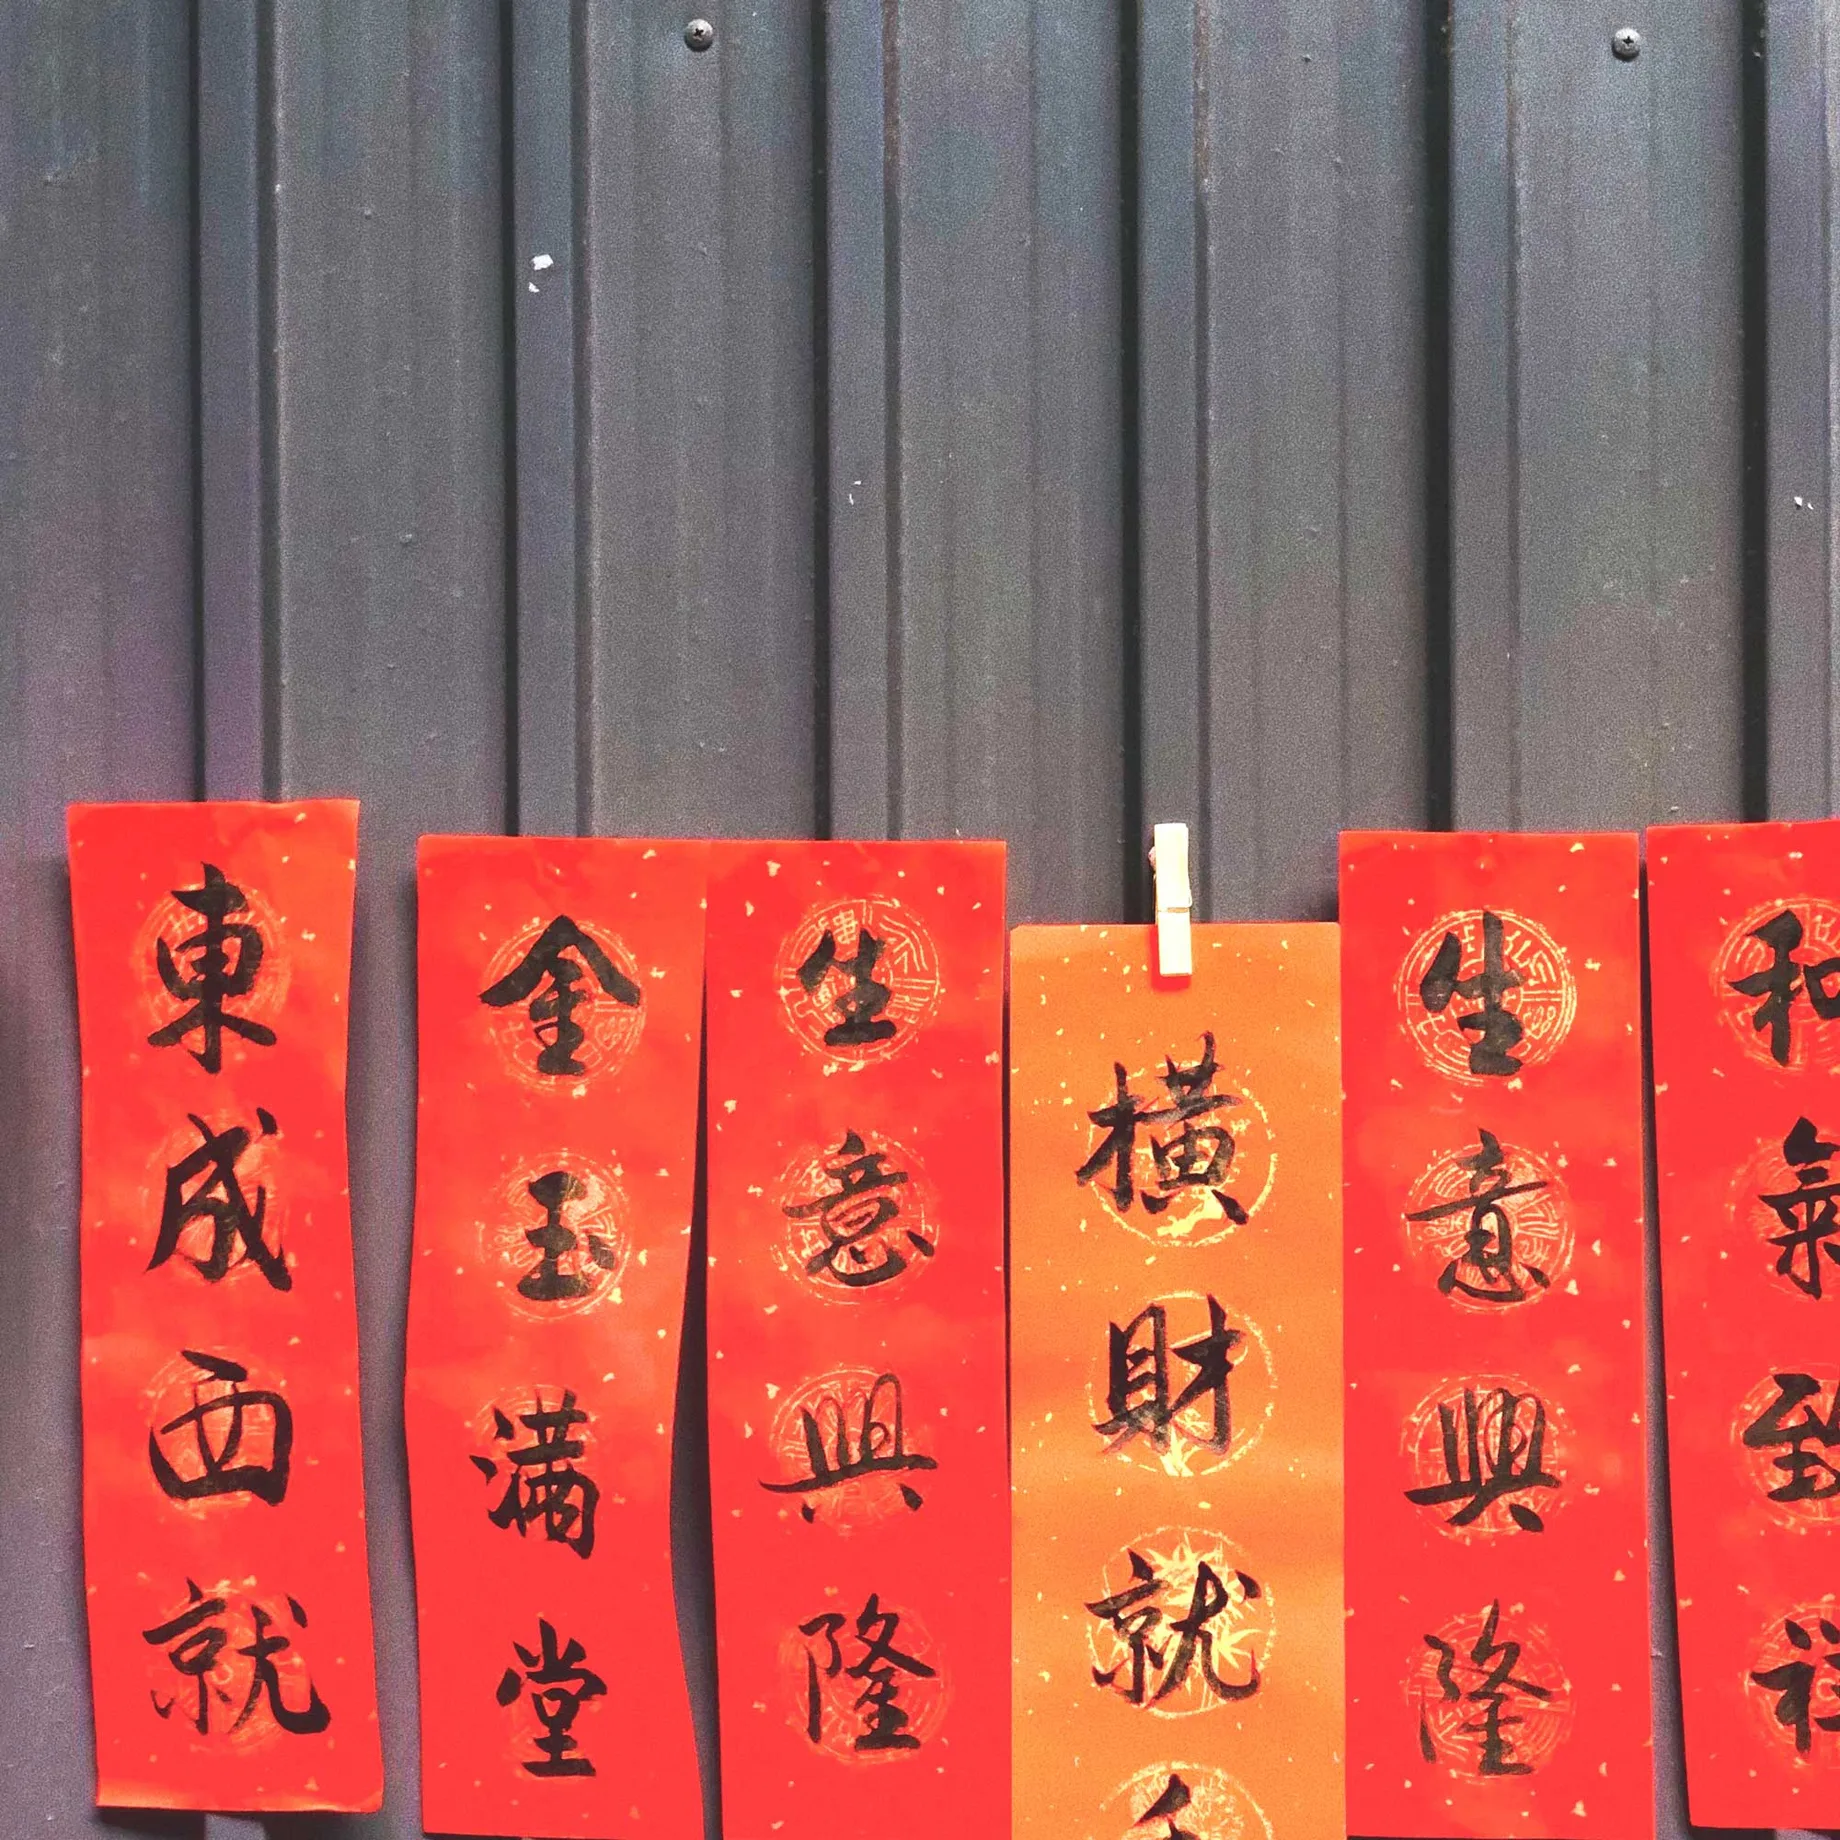 東成西就
金玉滿堂
生意興隆
橫財就手
生意興隆
和氣致祥